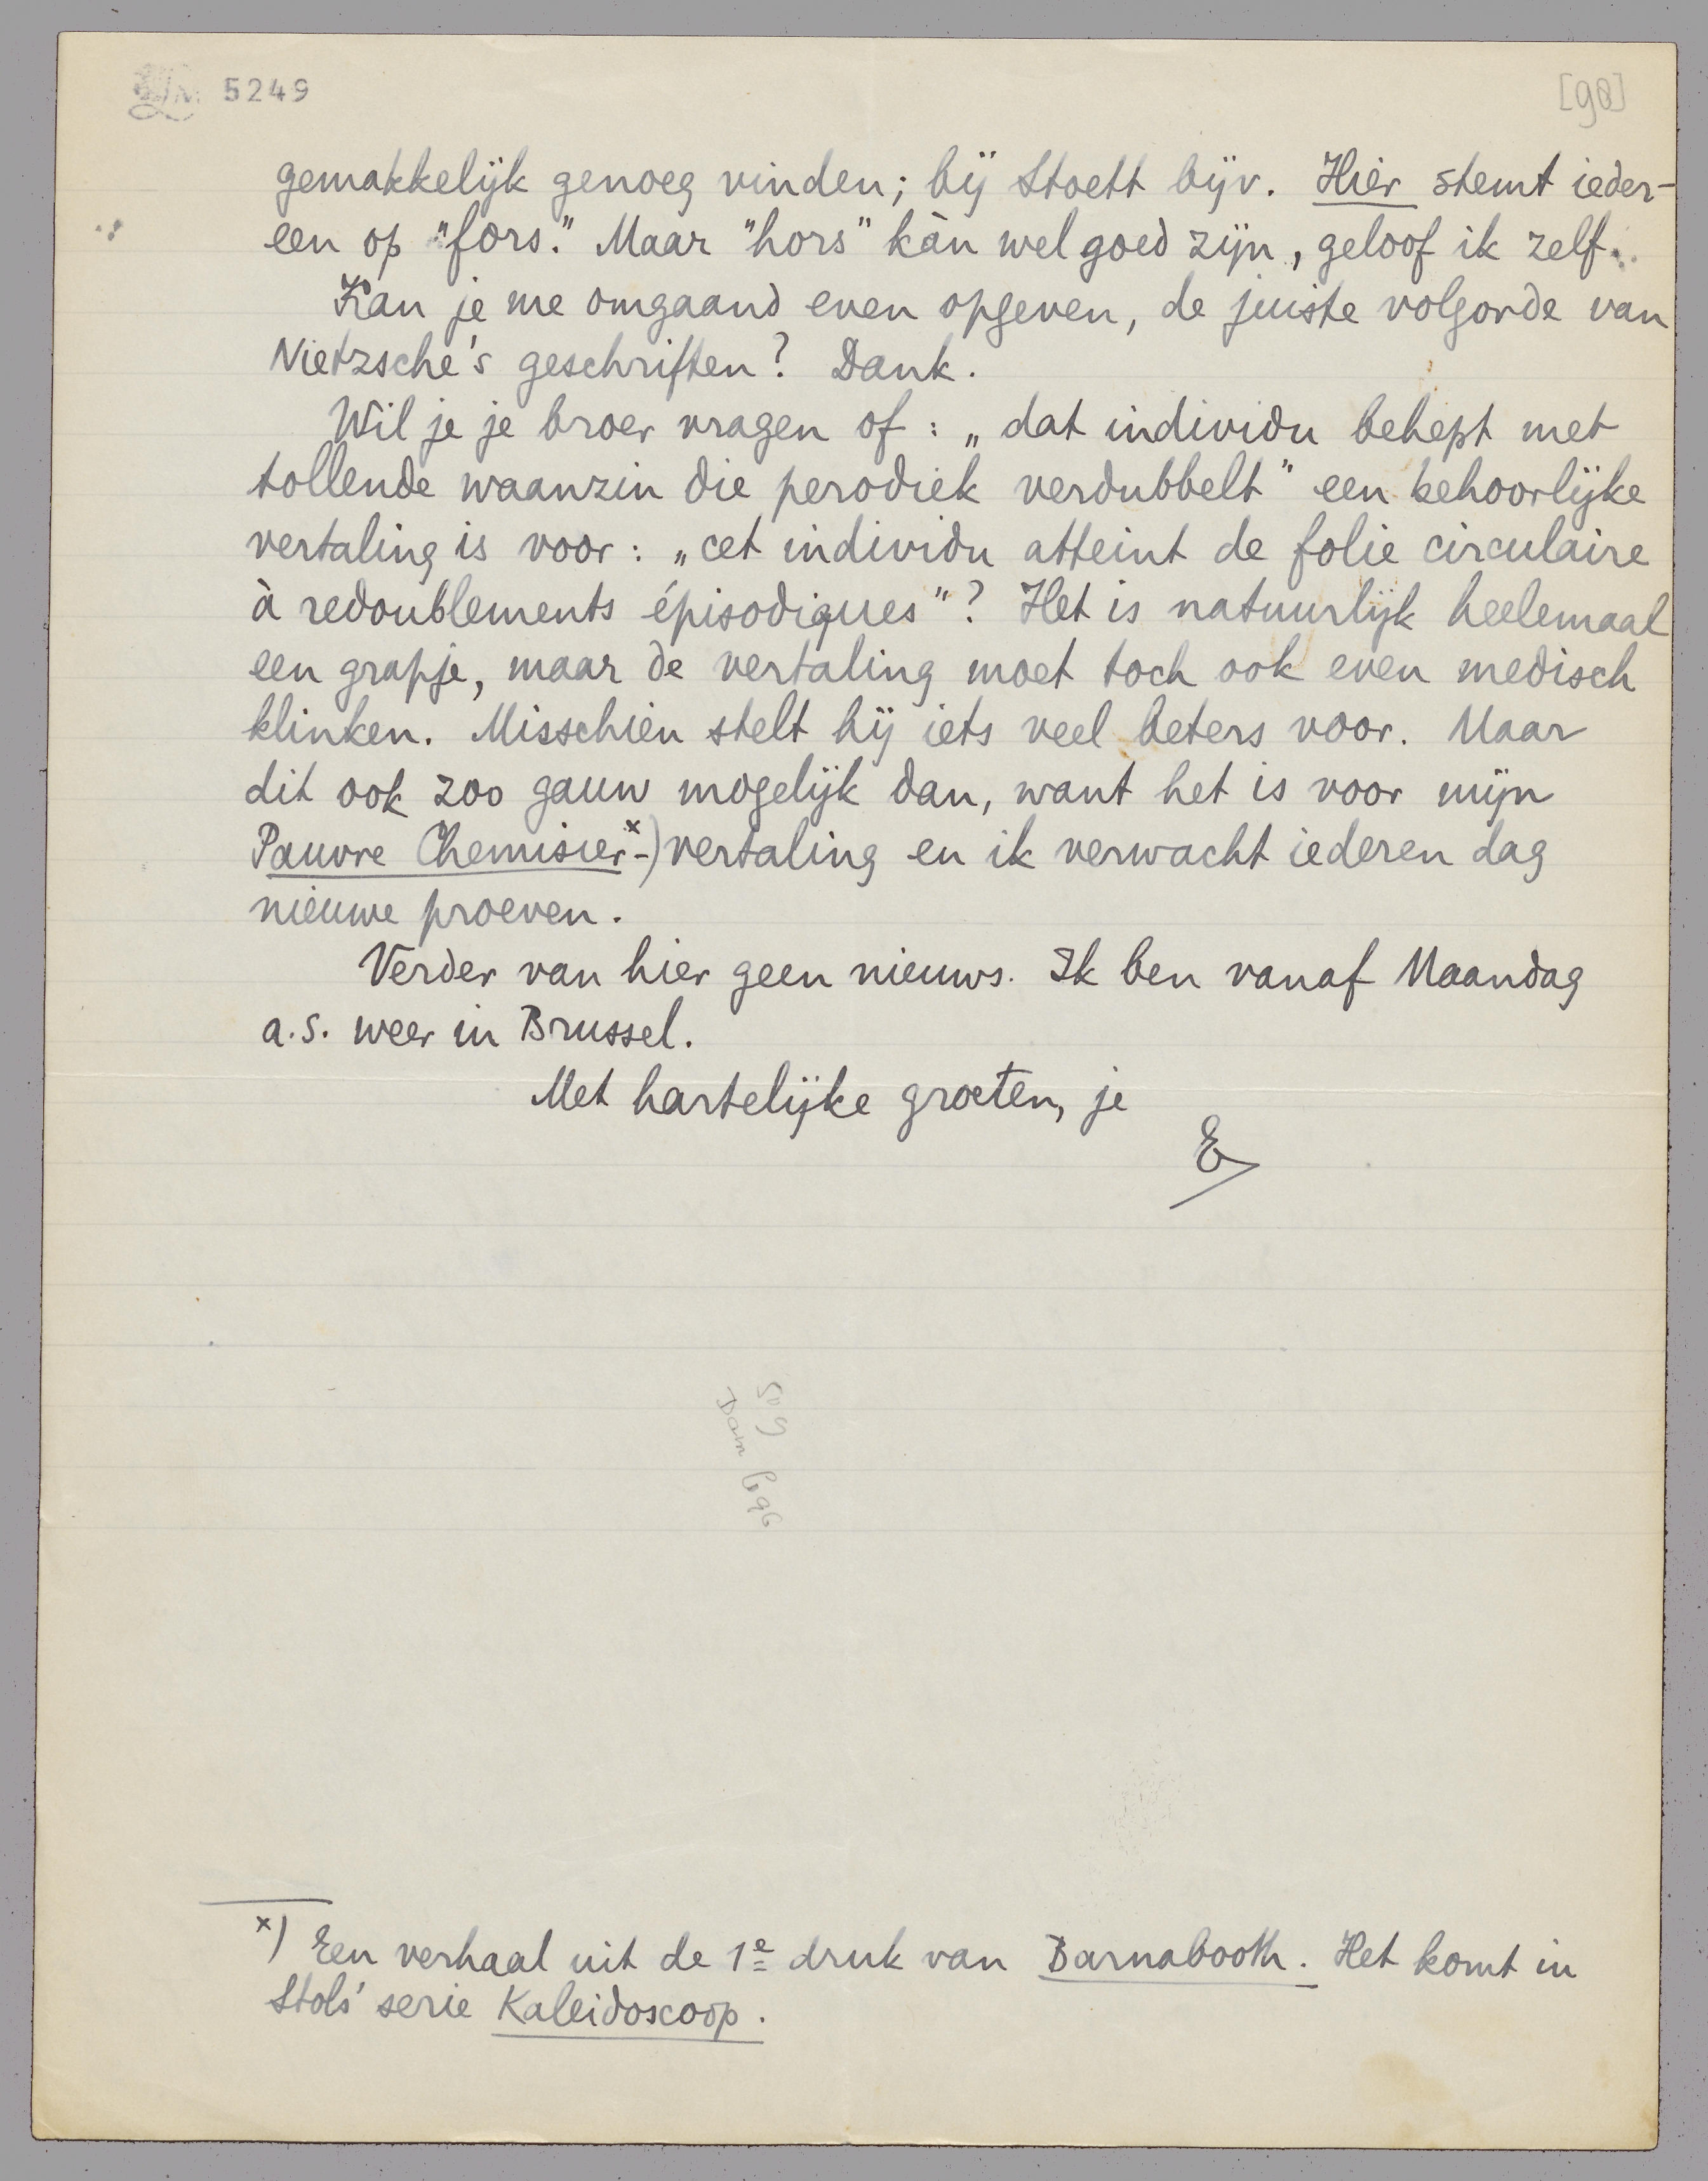 5249
[98]
gemakkelijk genoeg vinden; bij Stoett bijv. Hier stemt ieder-
een op "fors." Maar "hors" kàn wel goed zijn, geloof ik zelf.
Kan je me omgaand even opgeven, de juiste volgorde van
Nietzsche's geschriften? Dank.
Wil je je broer vragen of: „dat individu behept met
tollende waanzin die perodiek verdubbelt" een behoorlijke
vertaling is voor: „cet individu atteint de folie circulaire
à redoublements épisodiques"? Het is natuurlijk heelemaal
een grapje, maar de vertaling moet toch ook even medisch
klinken. Misschien stelt hij iets veel beters voor. Maar
dit ook zoo gauw mogelijk dan, want het is voor mijn
Pauvre Chemisier-x) vertaling en ik verwacht iederen dag
nieuwe proeven.
Verder van hier geen nieuws. Ik ben vanaf Maandag
a.s. weer in Brussel.
Met hartelijke groeten, je
E
x) Een verhaal uit de 1e druk van Barnabooth. Het komt in
Stols' serie Kaleidoscoop.